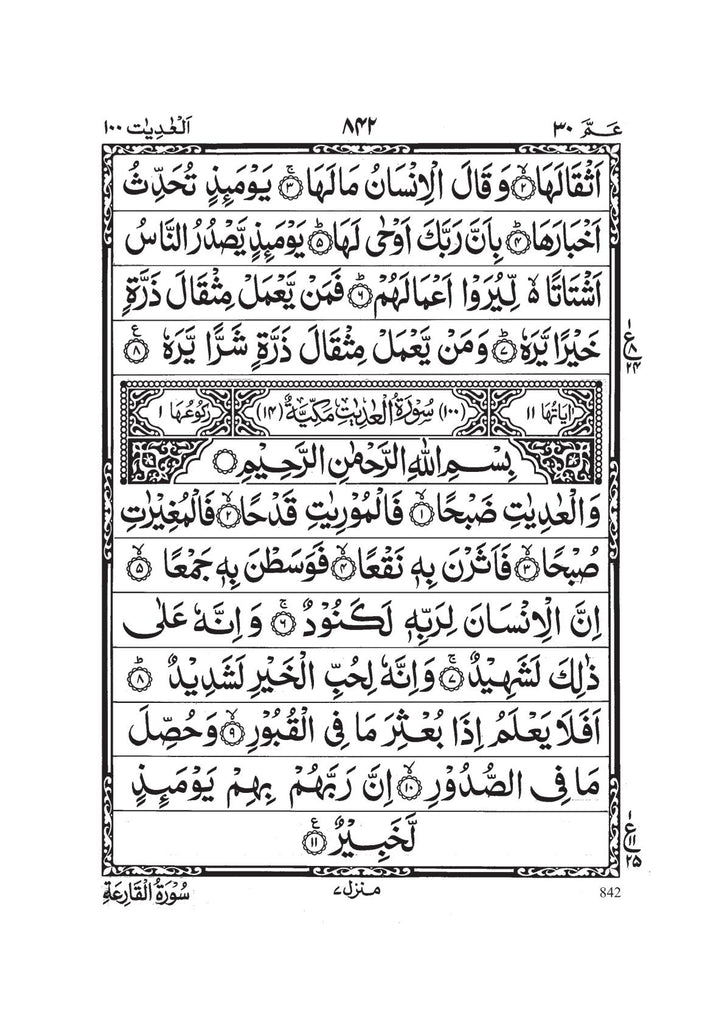 عَمَّ ٣٠ ٨٤٢ اَلْعٰدِيٰت ١٠٠
اَثْقَالَهَا ۙ﴿٢﴾ وَقَالَ الْاِنْسَانُ مَا لَهَا ۚ﴿٣﴾ يَوْمَئِذٍ تُحَدِّثُ
اَخْبَارَهَا ۙ﴿٤﴾ بِاَنَّ رَبَّكَ اَوْحٰى لَهَا ؕ﴿٥﴾ يَوْمَئِذٍ يَّصْدُرُ النَّاسُ
اَشْتَاتًا ۙ۬ لِّيُرَوْا اَعْمَالَهُمْ ؕ﴿٦﴾ فَمَنْ يَّعْمَلْ مِثْقَالَ ذَرَّةٍ
خَيْرًا يَّرَهٗ ؕ﴿٧﴾ وَمَنْ يَّعْمَلْ مِثْقَالَ ذَرَّةٍ شَرًّا يَّرَهٗ ﴿٨﴾ ع
ع ١ ٨ ٢٤
اٰيَاتُهَا ١١ (١٠٠) سُوْرَةُ الْعٰدِيٰتِ مَكِّيَّةٌ (١٤) رُكُوْعُهَا ١
بِسْمِ اللّٰهِ الرَّحْمٰنِ الرَّحِيْمِ
وَالْعٰدِيٰتِ ضَبْحًا ۙ﴿١﴾ فَالْمُوْرِيٰتِ قَدْحًا ۙ﴿٢﴾ فَالْمُغِيْرٰتِ
صُبْحًا ۙ﴿٣﴾ فَاَثَرْنَ بِهٖ نَقْعًا ۙ﴿٤﴾ فَوَسَطْنَ بِهٖ جَمْعًا ۙ﴿٥﴾
اِنَّ الْاِنْسَانَ لِرَبِّهٖ لَكَنُوْدٌ ۚ﴿٦﴾ وَاِنَّهٗ عَلٰى
ذٰلِكَ لَشَهِيْدٌ ۚ﴿٧﴾ وَاِنَّهٗ لِحُبِّ الْخَيْرِ لَشَدِيْدٌ ؕ﴿٨﴾
اَفَلَا يَعْلَمُ اِذَا بُعْثِرَ مَا فِى الْقُبُوْرِ ۙ﴿٩﴾ وَحُصِّلَ
مَا فِى الصُّدُوْرِ ۙ﴿١٠﴾ اِنَّ رَبَّهُمْ بِهِمْ يَوْمَئِذٍ
لَّخَبِيْرٌ ﴿١١﴾ ع
ع ١ ١١ ٢٥
842 منزل ٧ سُوْرَةُ الْقَارِعَةِ